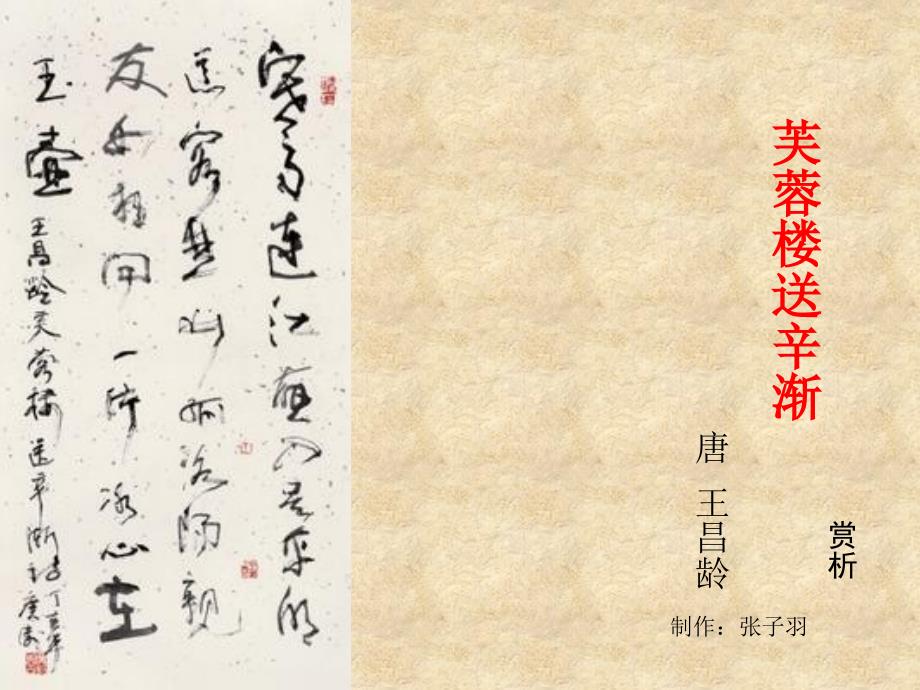 芙蓉楼送辛渐
赏析
唐 王昌龄
制作：张子羽
寒雨連江夜入吴平明
送客楚山孤洛陽親
友如相問一片冰心在
玉壺 王昌龄芙蓉楼送辛渐诗 丁亥年